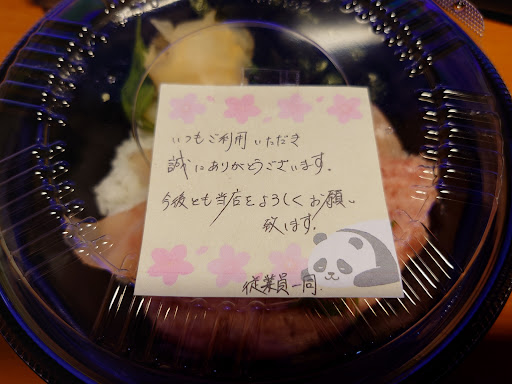 いつもご利用いただき
誠にありがとうございます。
今後とも当店をよろしくお願い
致します。
従業員一同.